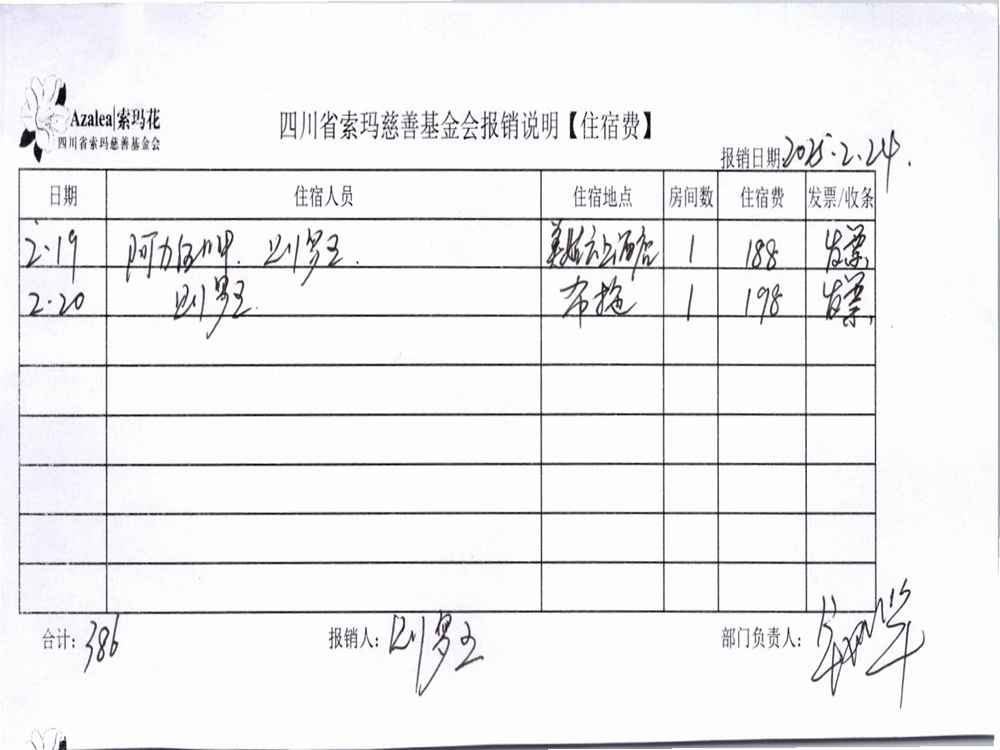 Azalea|索玛花
四川省索玛慈善基金会
四川省索玛慈善基金会报销说明【住宿费】
报销日期: 2025.2.24.
日期 住宿人员 住宿地点 房间数 住宿费 发票/收条
2.19 阿力 1 188 发票
2.20 布拖 1 198 发票
合计: 386 报销人: 部门负责人: